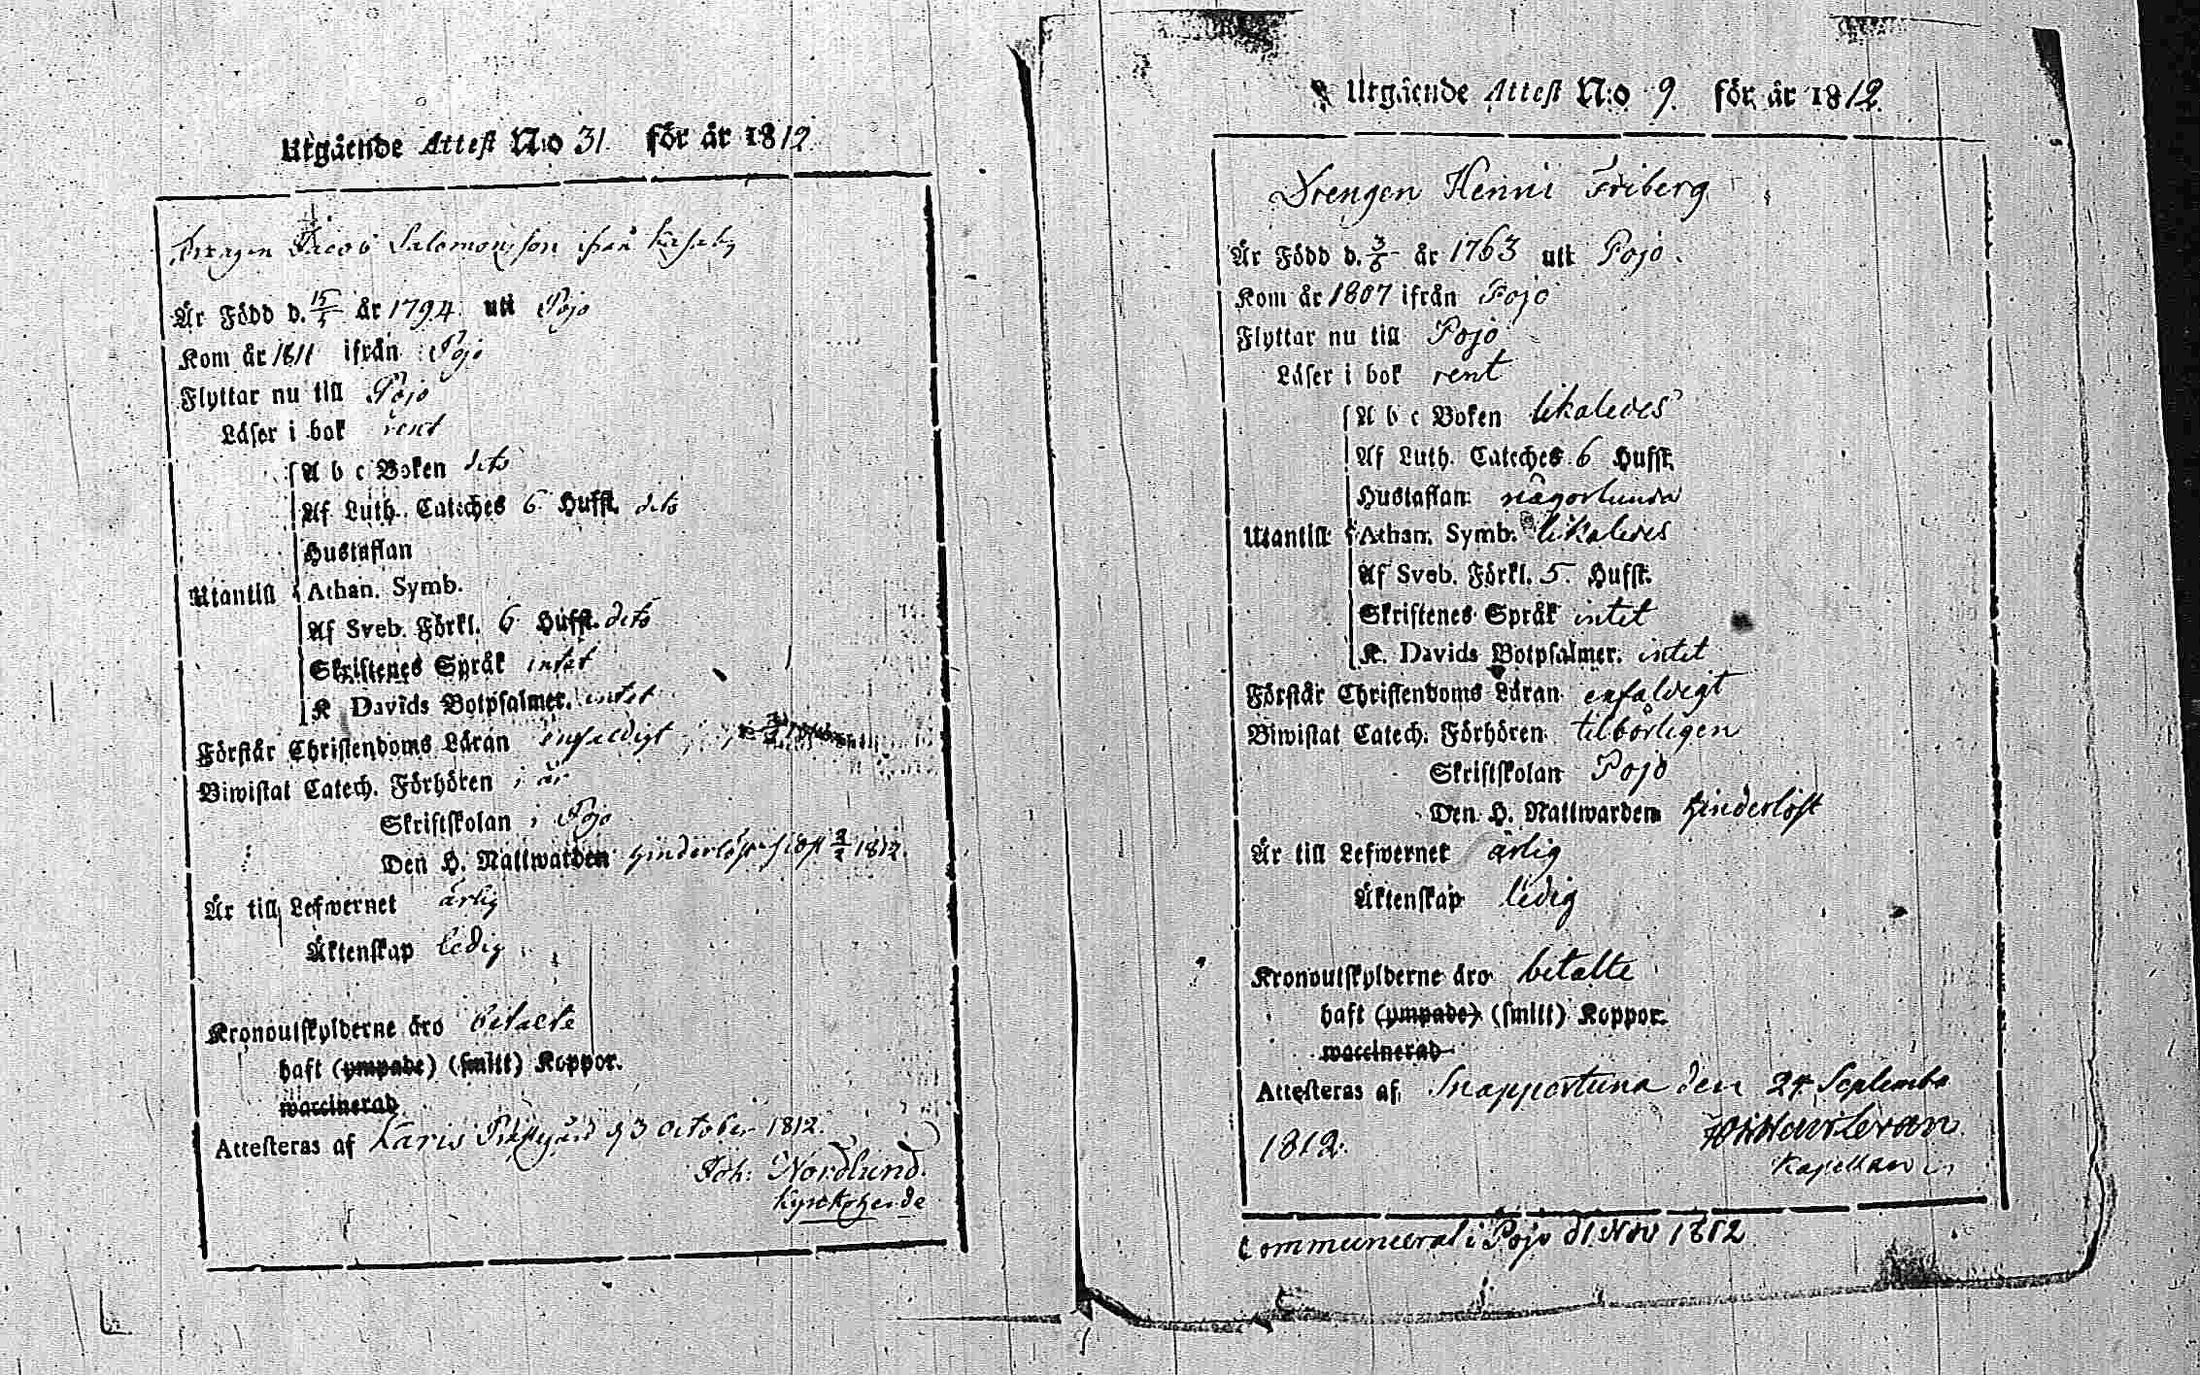 Utgående Attest N:o 31. för år 1812.
Drengen Jacob Salomonsson ifrån
Är Född d. 15/5 år 1794 uti Pojo
Kom år 1811 ifrån Pojo
Flyttar nu till Pojo
Läser i bok rent
A b c Boken dito
Af Luth. Cateches 6 Hufst. dito
Hustaflan
Utantill Athan. Symb.
Af Sveb. Förkl. 6 Hufst. dito
Skriftenes Språk intet
K Davids Botpsalmer. intet
Förstår Christendoms Läran enfaldigt
Biwistat Catech. Förhören i år
Skriftskolan i Pojo
Den H. Nattwarden hinderlöst sidst 1812.
Är till Lefwernet ärlig
Äktenskap ledig
Kronoutskylderne äro betalte
haft (ympade) (smitt) Koppor.
waccinerad
Attesteras af Karis Prästgård d 3 october 1812.
Joh: Nordlund.
Kyrckoherde
Utgående Attest N:o 9. för år 1812.
Drengen Henric Friberg
Är Född d. 3/6 år 1763 uti Pojo.
Kom år 1807 ifrån Pojo
Flyttar nu till Pojo
Läser i bok rent
A b c Boken likaledes
Af Luth. Cateches 6 Hufst.
Hustaflan någorlunda
Utantill Athan. Symb. likaledes
Af Sveb. Förkl. 5. Hufst.
Skriftenes Språk intet
K. Davids Botpsalmer. intet
Förstår Christendoms Läran enfaldigt
Biwistat Catech. Förhören tilbörligen
Skriftskolan Pojo
Den H. Nattwarden hinderlöst
Är till Lefwernet ärlig
Äktenskap ledig
Kronoutskylderne äro betalte
haft (ympade) (smitt) Koppor.
waccinerad
Attesteras af Snappertuna den 24 Septembr
1812.
Kapellan
Communicerat i Pojo d 1 Nov 1812